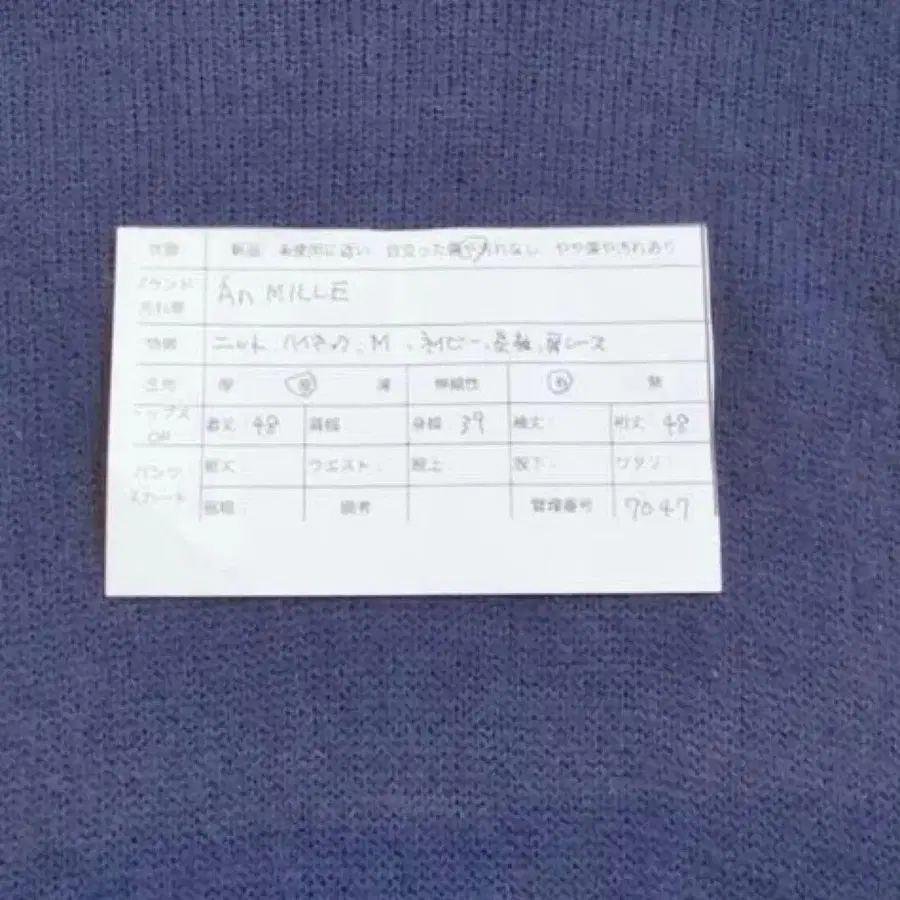 状態 新品 未使用に近い 目立った傷や汚れなし やや傷や汚れあり
ブランド An MILLE
特徴 ニット ハイネック、M、ネイビー、長袖、肩レース
生地 厚 普 薄 伸縮性 有 無
トップス OP 着丈 48 肩幅 身幅 39 袖丈 裄丈 48
パンツ 総丈 ウエスト 股上 股下 ワタリ
スカート 裾幅 備考 管理番号 7047